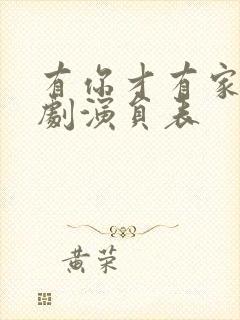 有你才有家
劇演員表
黄荣